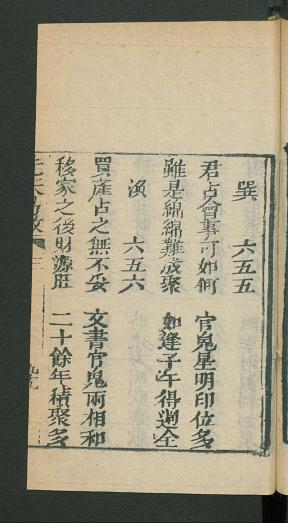 巽 六五五
君占會事可如何 官鬼星明印位多
雖是綿綿難成聚 如逢子午得週全
渙 六五六
買產占之無不妥 文書官鬼兩相和
移家之後財源旺 二十餘年積聚多